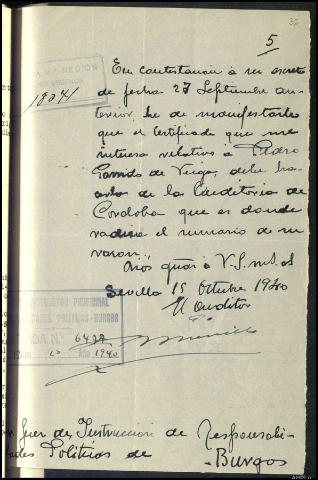 36
5
2ª REGION
18241
En contestación á su escrito
de fecha 27 Septiembre an-
terior, he de manifestarle
que el certificado que me
interesa relativo á Pedro
Garrido de Veiga, debe
de la Auditoria de
Cordoba que es donde
radica el sumario de su
razon.
Dios guar á V.S. m. a.
Sevilla 15 Octubre 1940
El Auditor
PROVINCIAL
POLITICAS-BURGOS
ADA N.º 6427
10 Año 1940
Juez de Instruccion de Responsabi-
dades Politicas de
-Burgos